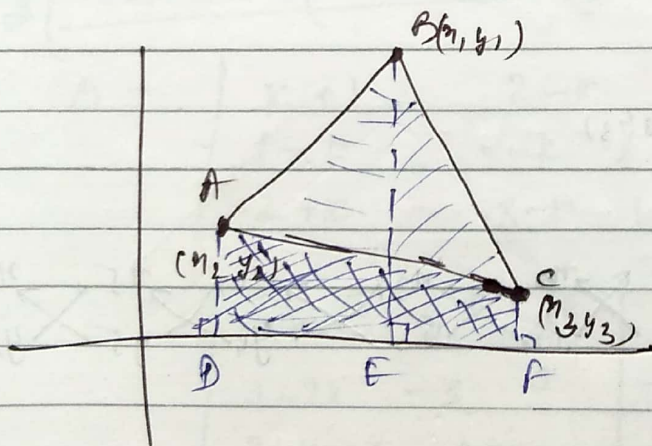 B(x, y,)
A
(x2 y2)
C
(x3 y3)
D E F